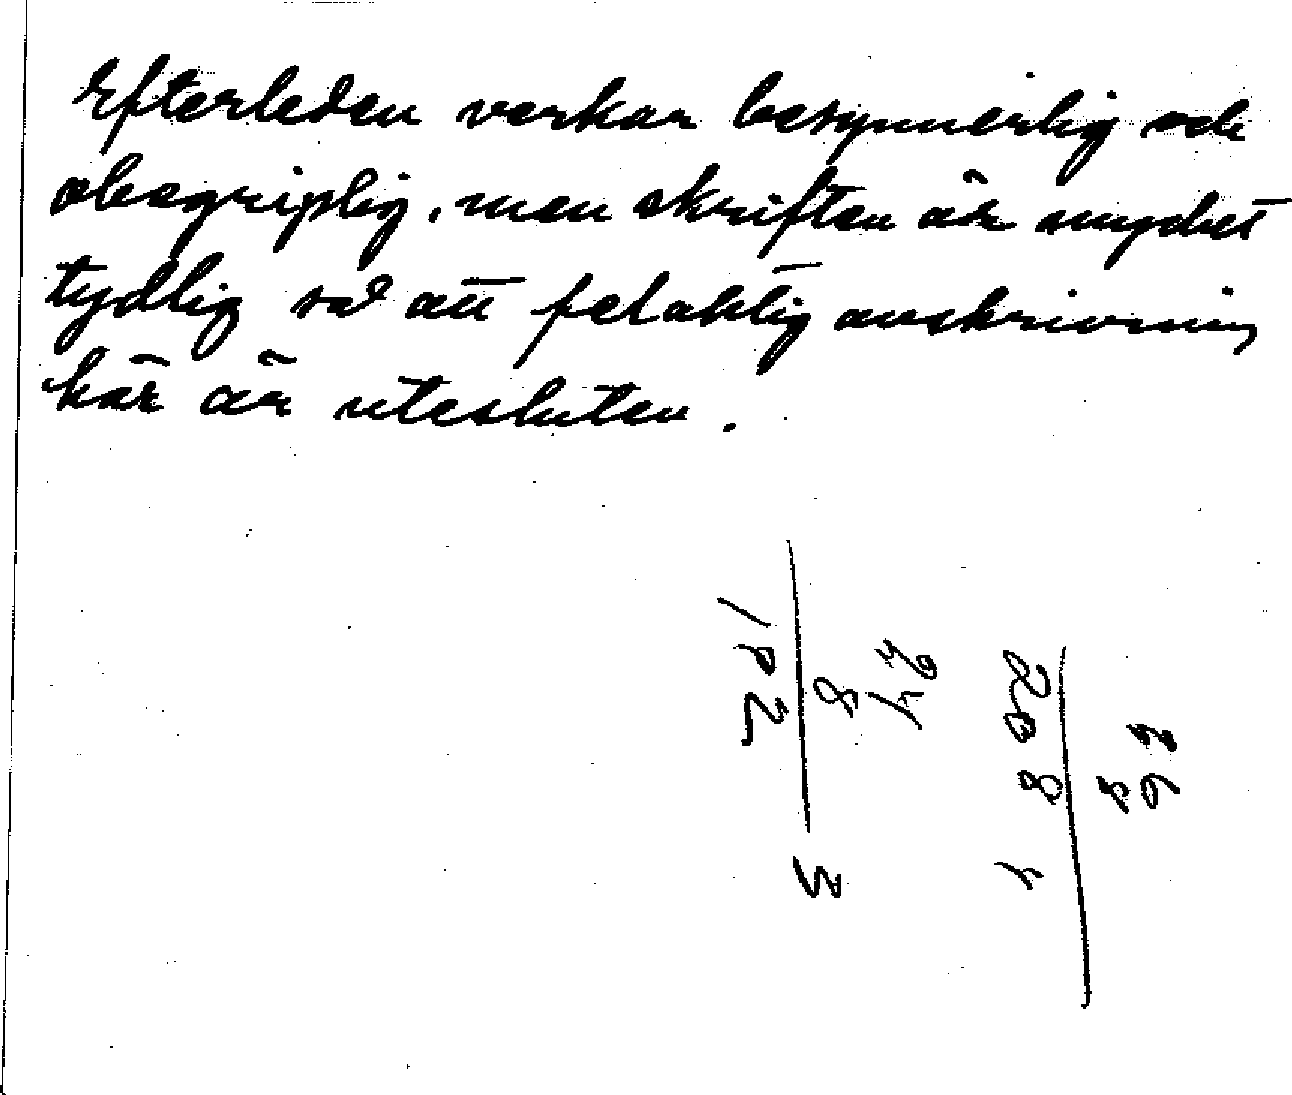 Efterleden verkar besynnerlig och
obegriplig, men skriften är mycket
tydlig så att felaktig avskrivning
här är utesluten.
24
8
192
3
26
8
208
4